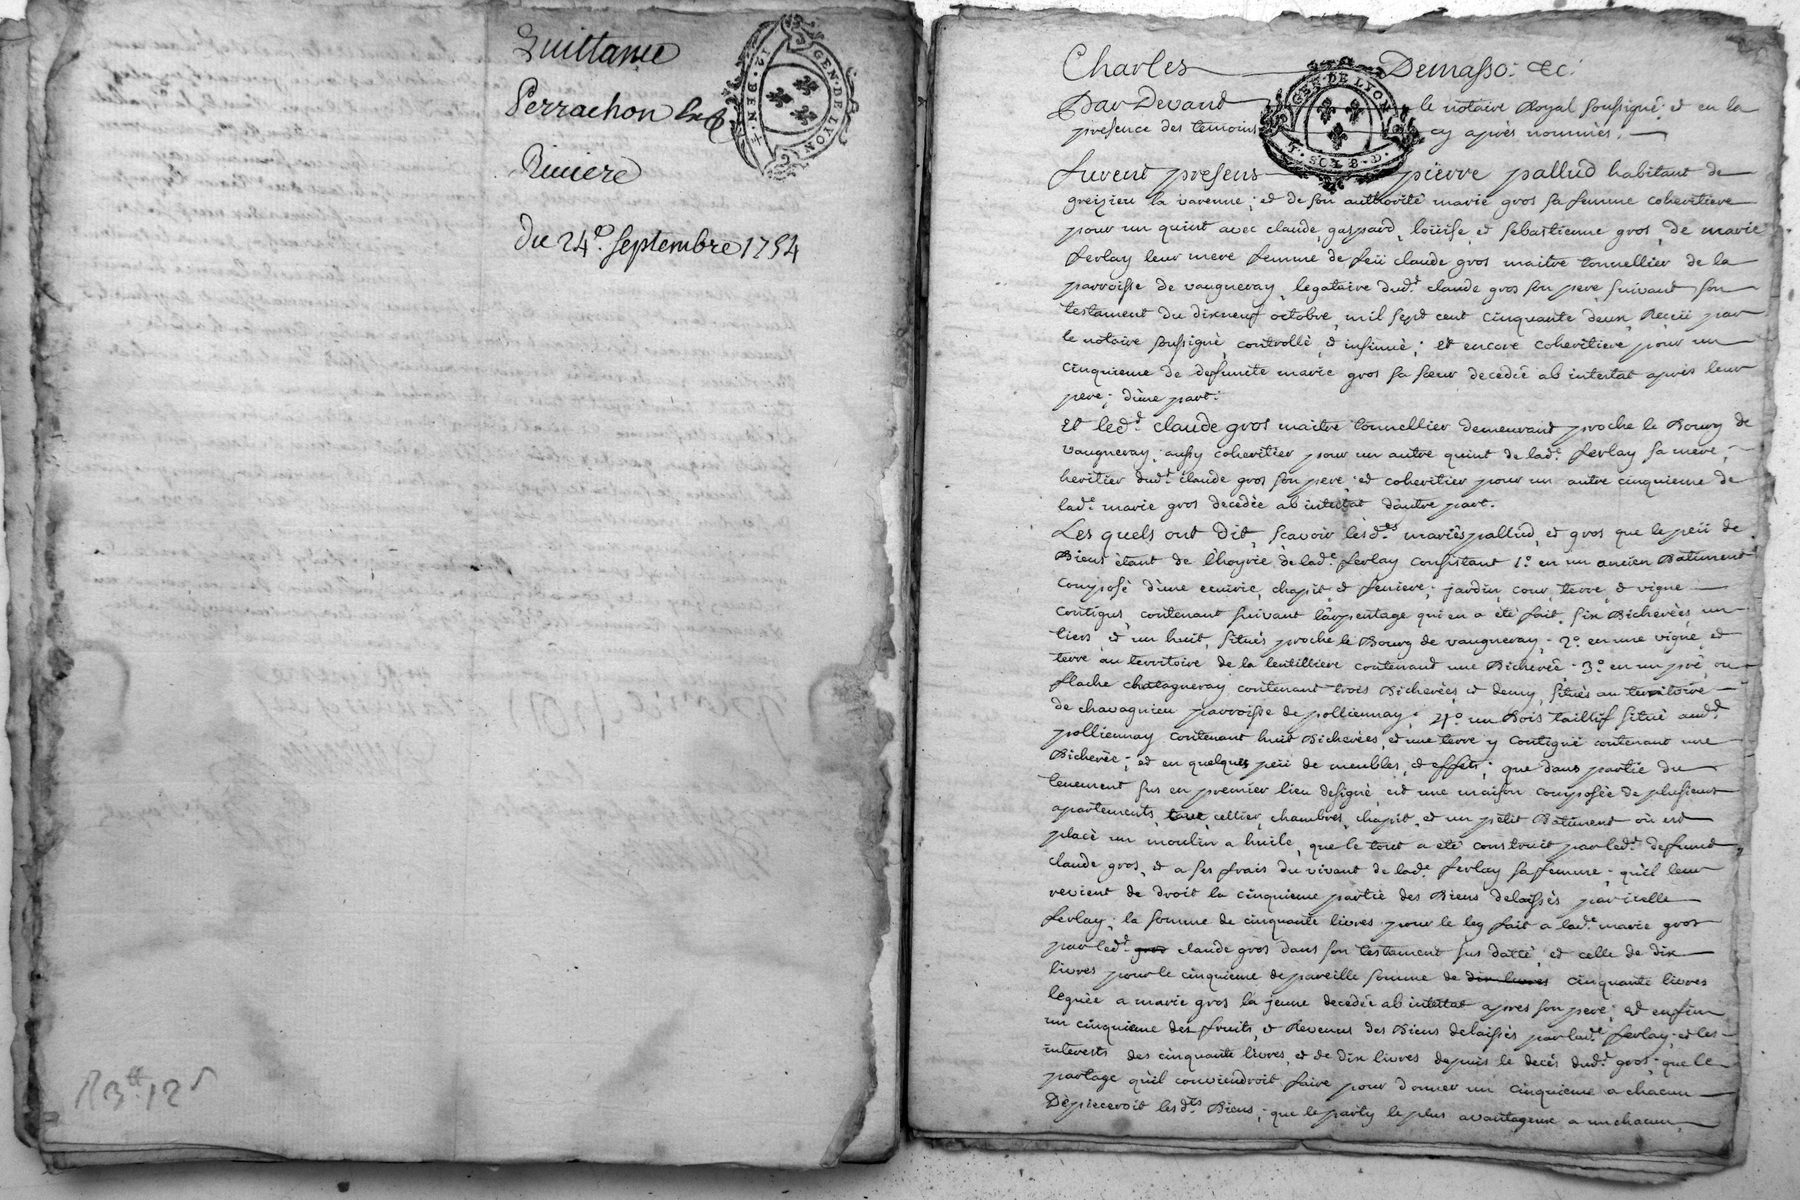 Quittance
Perrachon
Riviere
Du 24e. septembre 1754
GEN. DE LYON
12. DEN.
Charles Demasso. &c.
GEN. DE LYON
SOL. 8. D.
Par Devant le notaire Royal soussigné; et en la
presence des temoins cy après nommés.
Furent presens pierre pallud habitant de
greizieu la varenne; et de son authorité marie gros sa femme coheritiere
pour un quint avec claude, gaspard, loüise, et sebastienne gros, de marie
ferlay leur mere femme de feü claude gros maitre tonnellier de la
parroisse de vaugneray, legataire dud.t claude gros son pere suivant son
testament du dixneuf octobre, mil sept cent cinquante deux, Receü par
le notaire soussigné, controllé, et insinué; et encore coheritiere pour un
cinquieme de defunte marie gros sa sœur decedée ab intestat après leur
pere; d'une part.
Et led.t claude gros maitre tonnellier demeurant proche le Bourg de
vaugneray, aussy coheritier pour un autre quint de lad.e ferlay sa mere,
heritier dud.t claude gros son pere et coheritier pour un autre cinquieme de
lad.e marie gros decedée ab intestat d'autre part.
Les quels ont dit, scavoir lesd.ts mariés pallud, et gros que le peü de
Biens étant de l'hoyrie de lad.e ferlay consistant 1.o en un ancien Batiment
composé d'une ecurie, chapit et feniere; jardin, cour, terre, et vigne
contigus, contenant suivant l'arpentage qui en a été fait, six Bicherées, un
tiers, et un huit, situés proche le Bourg de vaugneray; 2.o en une vigne, et
terre au territoire de la lentilliere contenant une Bicherée; 3.o en un pré, ou
flache chatagneray contenant trois Bicherées et demy, situés au territoire
de chavagnieu parroisse de polliennay; 4.o un Bois taillif situé aud.t
polliennay contenant huit Bicherées, et une terre y contigüe contenant une
Bicherée; et en quelques peü de meubles, et effets; que dans partie du
tenement sus en premier lieu designé, est une maison composée de plusieurs
apartements, cellier, chambres, chapit, et un petit Batiment où est
placé un moulin a huile, que le tout a été construit par led.t defunt
claude gros, et a ses frais du vivant de lad.e ferlay sa femme; qu'il leur
revient de droit la cinquieme partie des Biens delaissés par icelle
ferlay; la somme de cinquante livres pour le leg fait a lad.e marie gros
par led.t gros claude gros dans son testament sus datté, et celle de dix
livres pour le cinquieme de pareille somme de dix livres cinquante livres
leguée a marie gros la jeune decedée ab intestat apres son pere; et enfin
un cinquieme des fruits, et Revenus des Biens delaissés par lad.e ferlay; et les
interests des cinquante livres, et de dix livres depuis le decès dud.t gros; que le
partage qu'il conviendroit faire pour donner un cinquieme a chacun
Dépieceroit lesd.ts Biens; que le party le plus avantageux a un chacun,